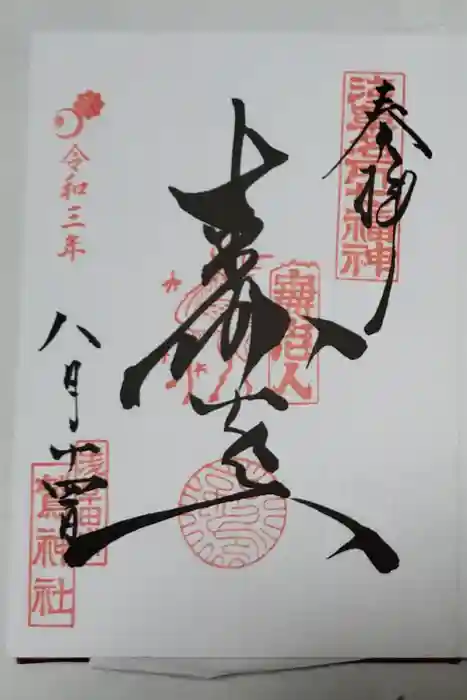 奉拝
浅草名所七福神
壽老人
壽老人
令和三年
八月十四日
浅草田甫
鷲神社